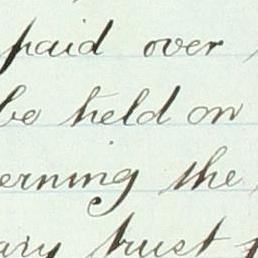 paid over
be held on
erning the
ary trust